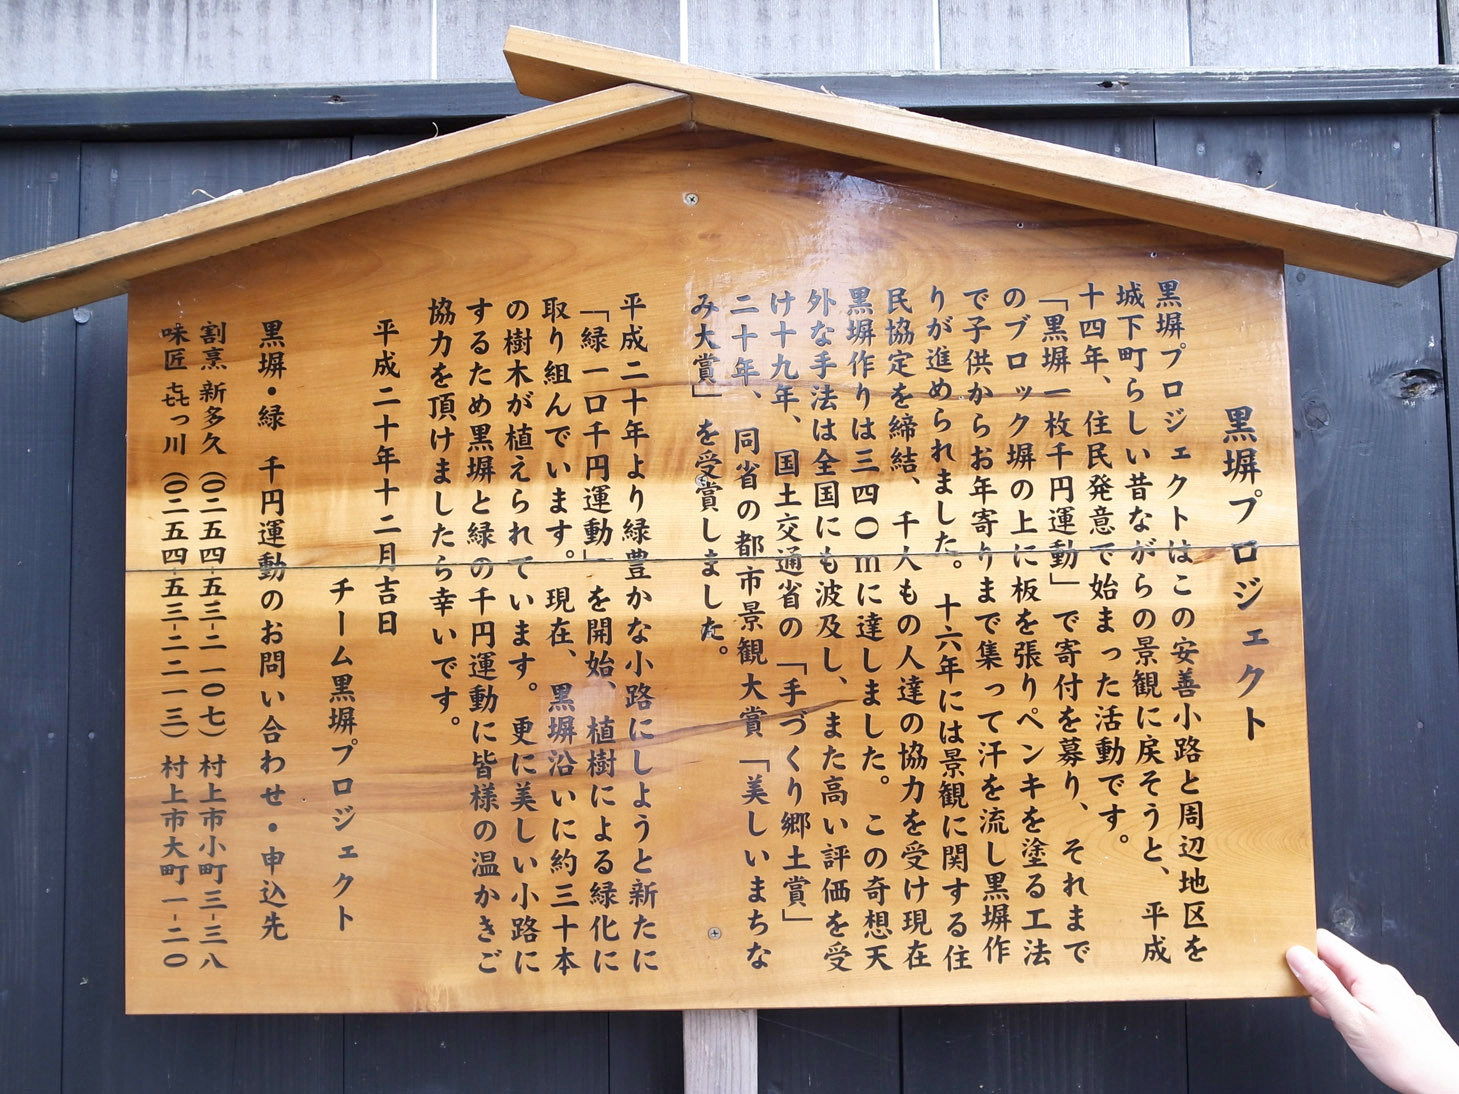 黒塀プロジェクト
黒塀プロジェクトはこの安善小路と周辺地区を
城下町らしい昔ながらの景観に戻そうと、平成
十四年、住民発意で始まった活動です。
「黒塀一枚千円運動」で寄付を募り、それまで
のブロック塀の上に板を張りペンキを塗る工法
で子供からお年寄りまで集って汗を流し黒塀作
りが進められました。十六年には景観に関する住
民協定を締結、千人もの人達の協力を受け現在
黒塀作りは三四〇mに達しました。この奇想天
外な手法は全国にも波及し、また高い評価を受
け十九年、国土交通省の「手づくり郷土賞」
二十年、同省の都市景観大賞「美しいまちな
み大賞」を受賞しました。
平成二十年より緑豊かな小路にしようと新たに
「緑一口千円運動」を開始、植樹による緑化に
取り組んでいます。現在、黒塀沿いに約三十本
の樹木が植えられています。更に美しい小路に
するため黒塀と緑の千円運動に皆様の温かきご
協力を頂けましたら幸いです。
平成二十年十二月吉日
チーム黒塀プロジェクト
黒塀・緑 千円運動のお問い合わせ・申込先
割烹 新多久(〇二五四-五三-二一〇七)村上市小町三-三八
味匠 㐂っ川(〇二五四-五三-二二一三)村上市大町一-二〇